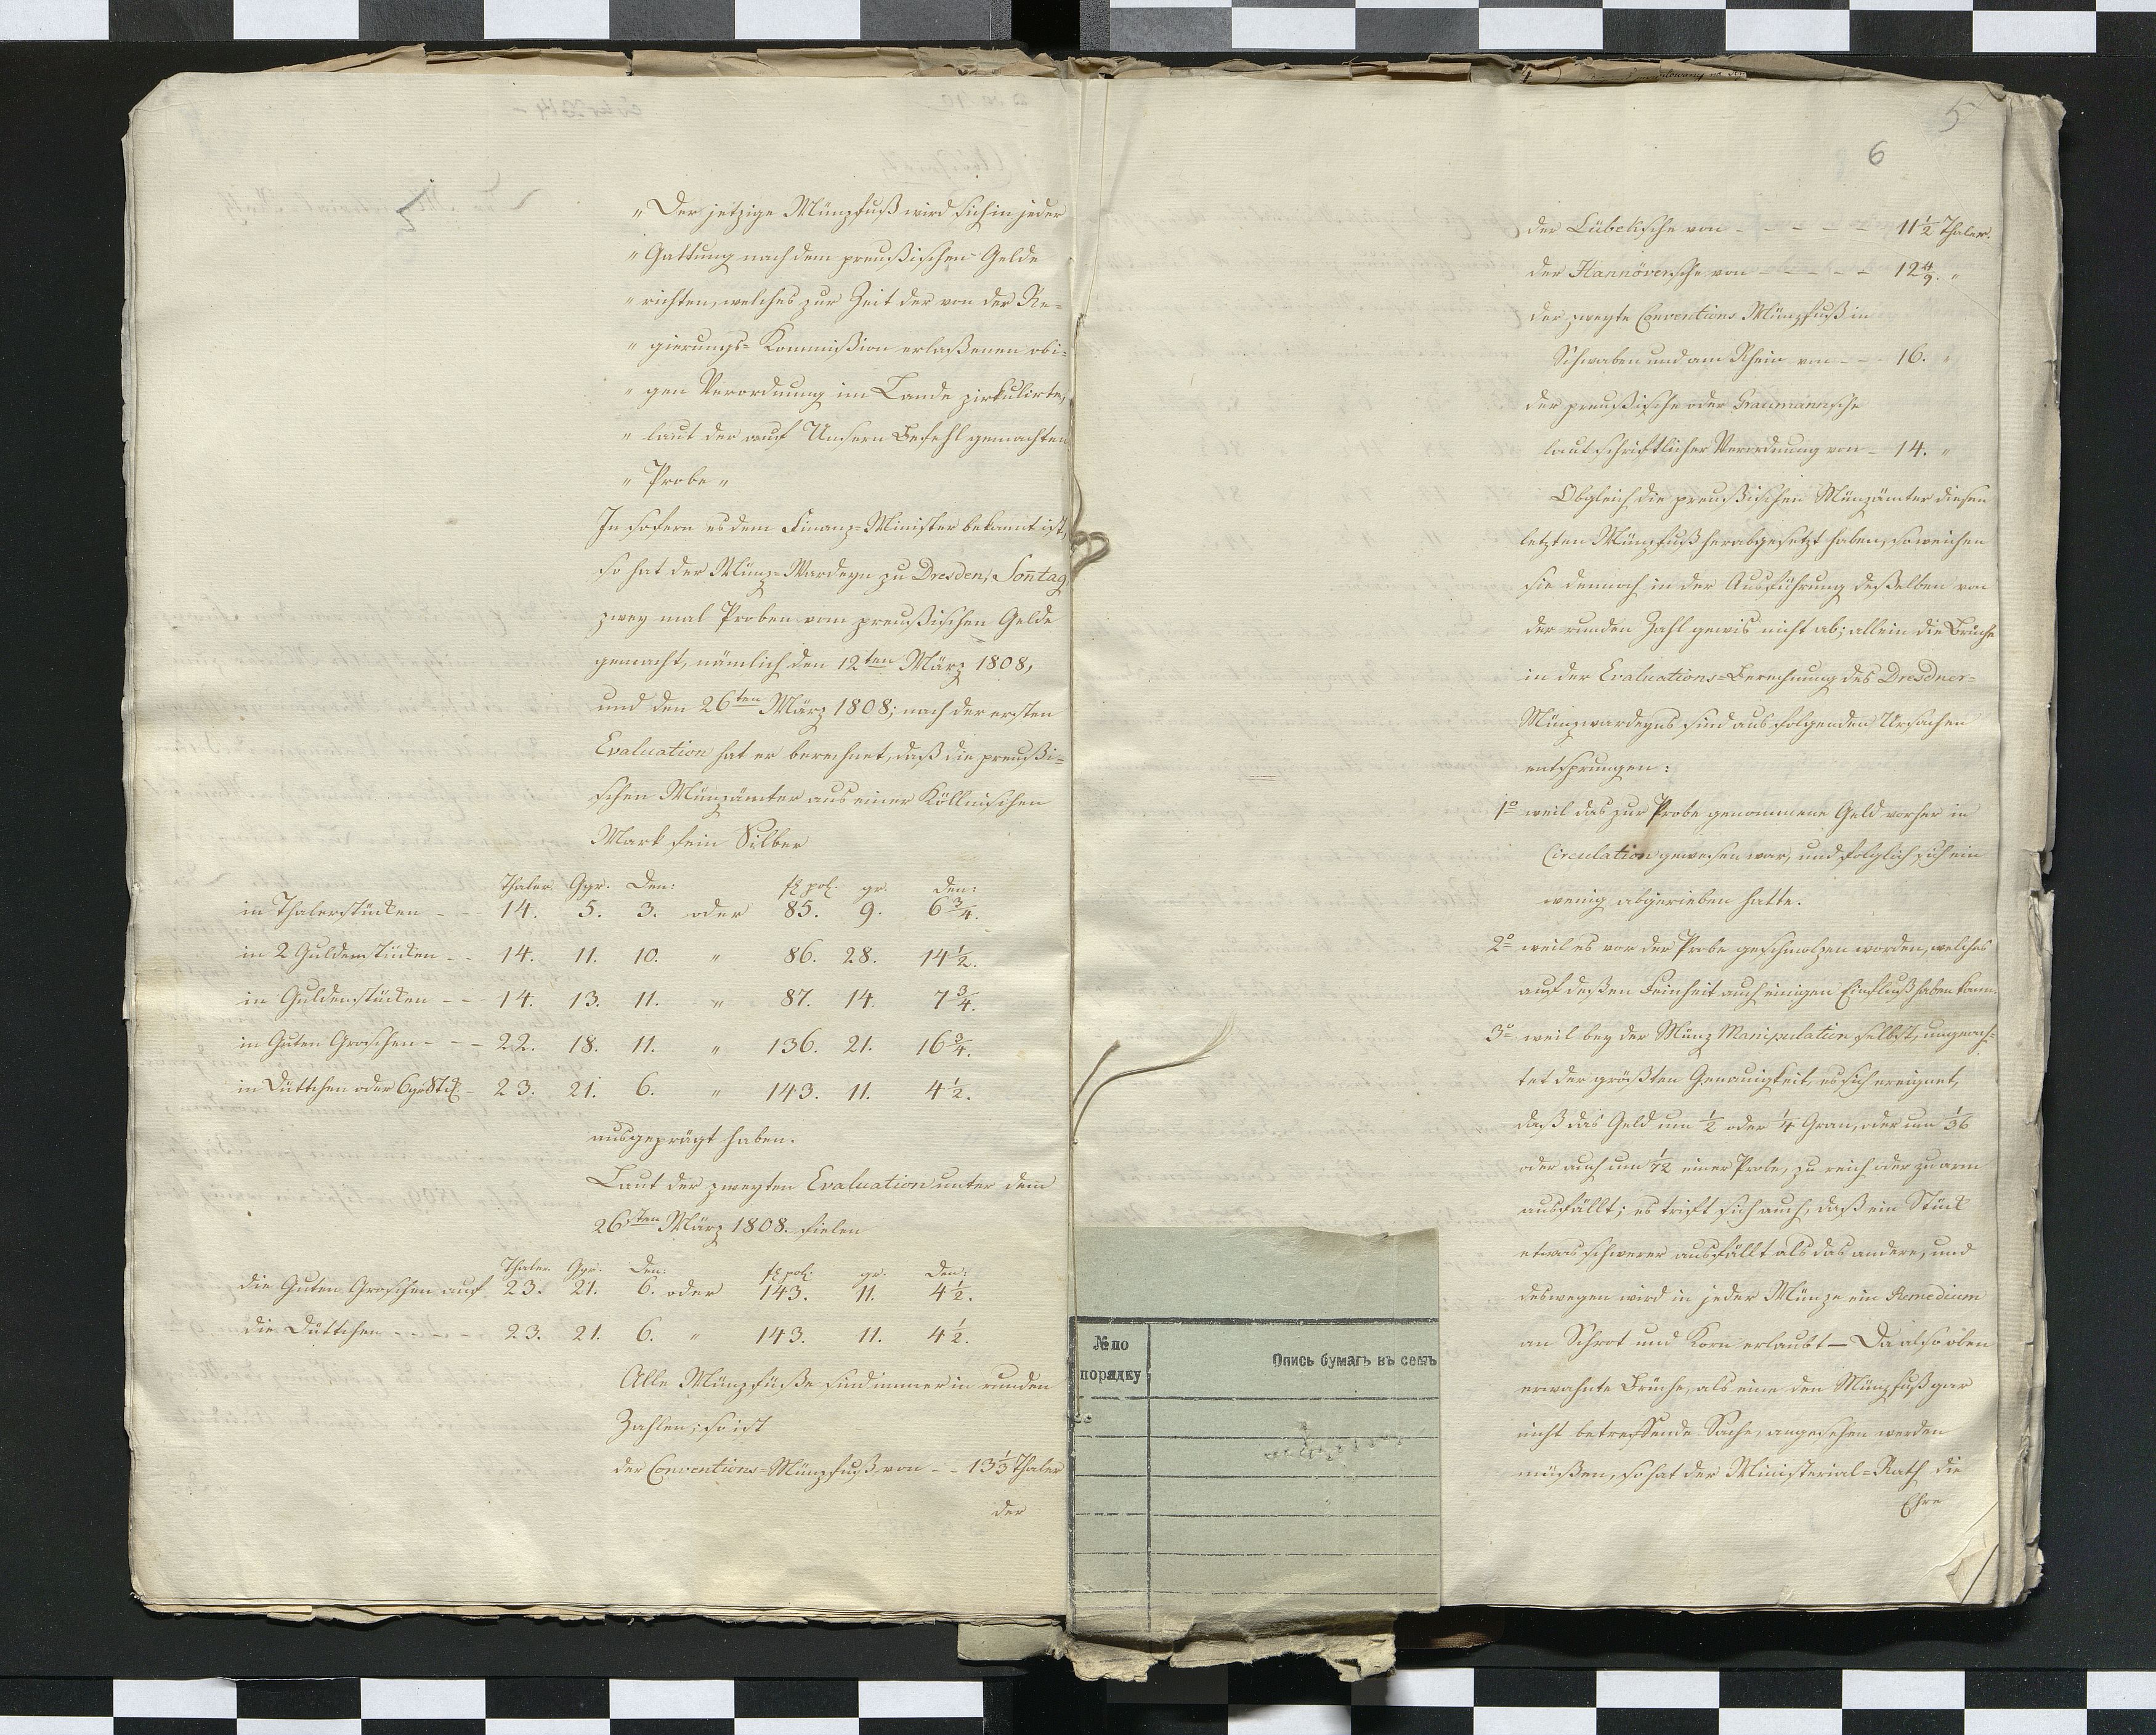 „ Der jetzige Münzfuß wird sich in jeder
„ Gattung nach dem preußischen Gelde
„ richten, welches zur Zeit der von der Re-
„ gierungs-Kommißion erlaßenen obi-
„ gen Verordnung im Lande zirkulirte,
„ laut der auf Unsern Befehl gemachten
„ Probe „
In sofern es dem Finanz-Minister bekannt ist,
so hat der Münz-Wardeyn zu Dresden, Sontag
zwey mal Proben vom preußischen Gelde
gemacht, nämlich den 12ten März 1808,
und den 26ten März 1808; nach der ersten
Evaluation hat er berechnet, daß die preußi-
schen Münzämter aus einer Köllnischen
Mark fein Silber
Thaler. Ggr. Den: fl pol. gr. den:
in Thalerstücken - - 14. 5. 3. oder 85. 9. 6 3/4.
in 2 Guldenstücken - - 14. 11. 10. „ 86. 28. 14 1/2.
in Guldenstücken - - 14. 13. 11. „ 87. 14. 7 3/4.
in Guten Groschen - - - 22. 18. 11. „ 136. 21. 16 3/4.
in Düttchen oder 6gr Stck - 23. 21. 6. „ 143. 11. 4 1/2.
ausgeprägt haben.
Laut der zweyten Evaluation unter dem
26sten März 1808. fielen
Thaler. Ggr. Den: fl pol. gr. Den:
die Guten Groschen auf 23. 21. 6. oder 143. 11. 4 1/2.
die Düttchen - - - - - 23. 21. 6. „ 143. 11. 4 1/2.
Alle Münzfüße sind immer in runden
Zahlen; so ist
der Conventions-Münzfuß von - - 13 1/3 Thaler
der
5
6
der Lübekische von - - - - - 11 1/2 Thaler.
der Hannöverische von - - - - - 12 4/9. „
der zweyte Conventions Münzfuß in
Schwaben und am Rhein von - - - 16. „
der preußische oder Graumännische
laut schriftlicher Verordnung von - 14. „
Obgleich die preußischen Münzämter diesen
letzten Münzfuß herabgesetzt haben, so weichen
sie dennoch in der Ausführung deßelben von
der runden Zahl gewis nicht ab; allein die Brüche
in der Evaluations-Berechnung des Dresdner-
Münzwardeyns sind aus folgenden Ursachen
entsprungen:
1o weil das zur Probe genommene Geld vorher in
Circulation gewesen war, und folglich sich ein
wenig abgerieben hatte.
2o weil es vor der Probe geschmolzen worden, welches
auf deßen Feinheit auch einigen Einfluß haben kann.
3o weil bey der Münz Manipulation selbst, ungeach-
tet der größten Genauigkeit, es sich ereignet,
daß das Geld um 1/2 oder 1/4 Gran, oder um 1/36
oder auch um 1/72 einer Probe, zu reich oder zu arm
ausfällt; es trift sich auch, daß ein Stück
etwas schwerer ausfällt als das andere, und
deswegen wird in jeder Münze ein Remedium
an Schrot und Korn erlaubt — Da also oben
erwahnte Brüche, als eine den Münzfuß gar
nicht betreffende Sache, angesehen werden
müßen, so hat der Ministerial-Rath die
Ehre
№ по
порядку
Опись бумагъ въ семъ